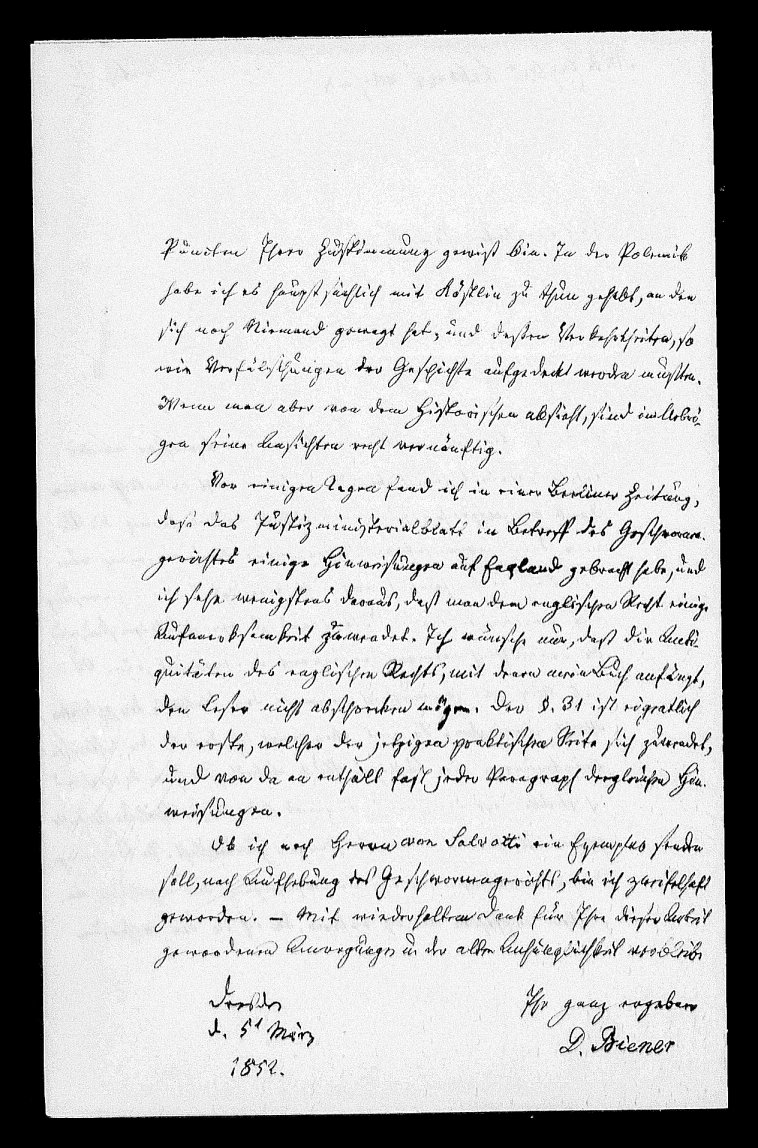 Puncten Ihrer Zustimmung gewiß bin. In der Polemik
habe ich es hauptsächlich mit Köstlin zu thun gehabt, an den
sich noch Niemand gewagt hat, und deßen Verkehrtheiten, so
wie Verfälschungen der Geschichte aufgedeckt werden mußten.
Wenn man aber von dem Historischen absieht, sind im Uebri-
gen seine Ansichten recht vernünftig.
Vor einigen Tagen fand ich in einer Berliner Zeitung,
daß das Justizministerialblatt in Betreff des Geschwornen-
gerichtes einige Hinweisungen auf England gebracht habe, und
ich sehe wenigstens daraus, daß man dem englischen Recht einige
Aufmerksamkeit zuwendet. Ich wünsche nur, daß die Anti-
quitäten des englischen Rechts, mit denen mein Buch anfängt,
den Leser nicht abschrecken mögen. Der §. 31 ist eigentlich
der erste, welcher der jetzigen praktischen Seite sich zuwendet,
und von da an enthält fast jeder Paragraph dergleichen Hin-
weisungen.
Ob ich noch Herrn von Salvotti ein Exemplar senden
soll, nach Aufhebung des Geschwornengerichts, bin ich zweifelhaft
geworden. – Mit wiederholtem Dank für Ihre dieser Arbeit
gewordenen Anregungen u in der alten Anhänglichkeit verbleibe
Ihr ganz ergebener
D. Biener
Dresden
d. 5t März
1852.